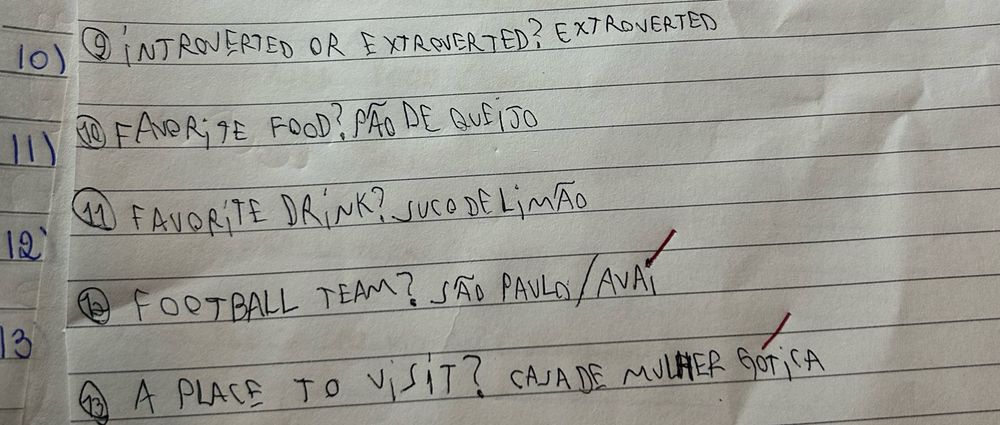 10) ⑨ INTROVERTED OR EXTROVERTED? EXTROVERTED
11) ⑩ FAVORITE FOOD? PÃO DE QUEIJO
⑪ FAVORITE DRINK? SUCO DE LIMÃO
12) ⑫ FOOTBALL TEAM? SÃO PAULO/AVAÍ
13 ⑬ A PLACE TO VISIT? CASA DE MULHER GÓTICA